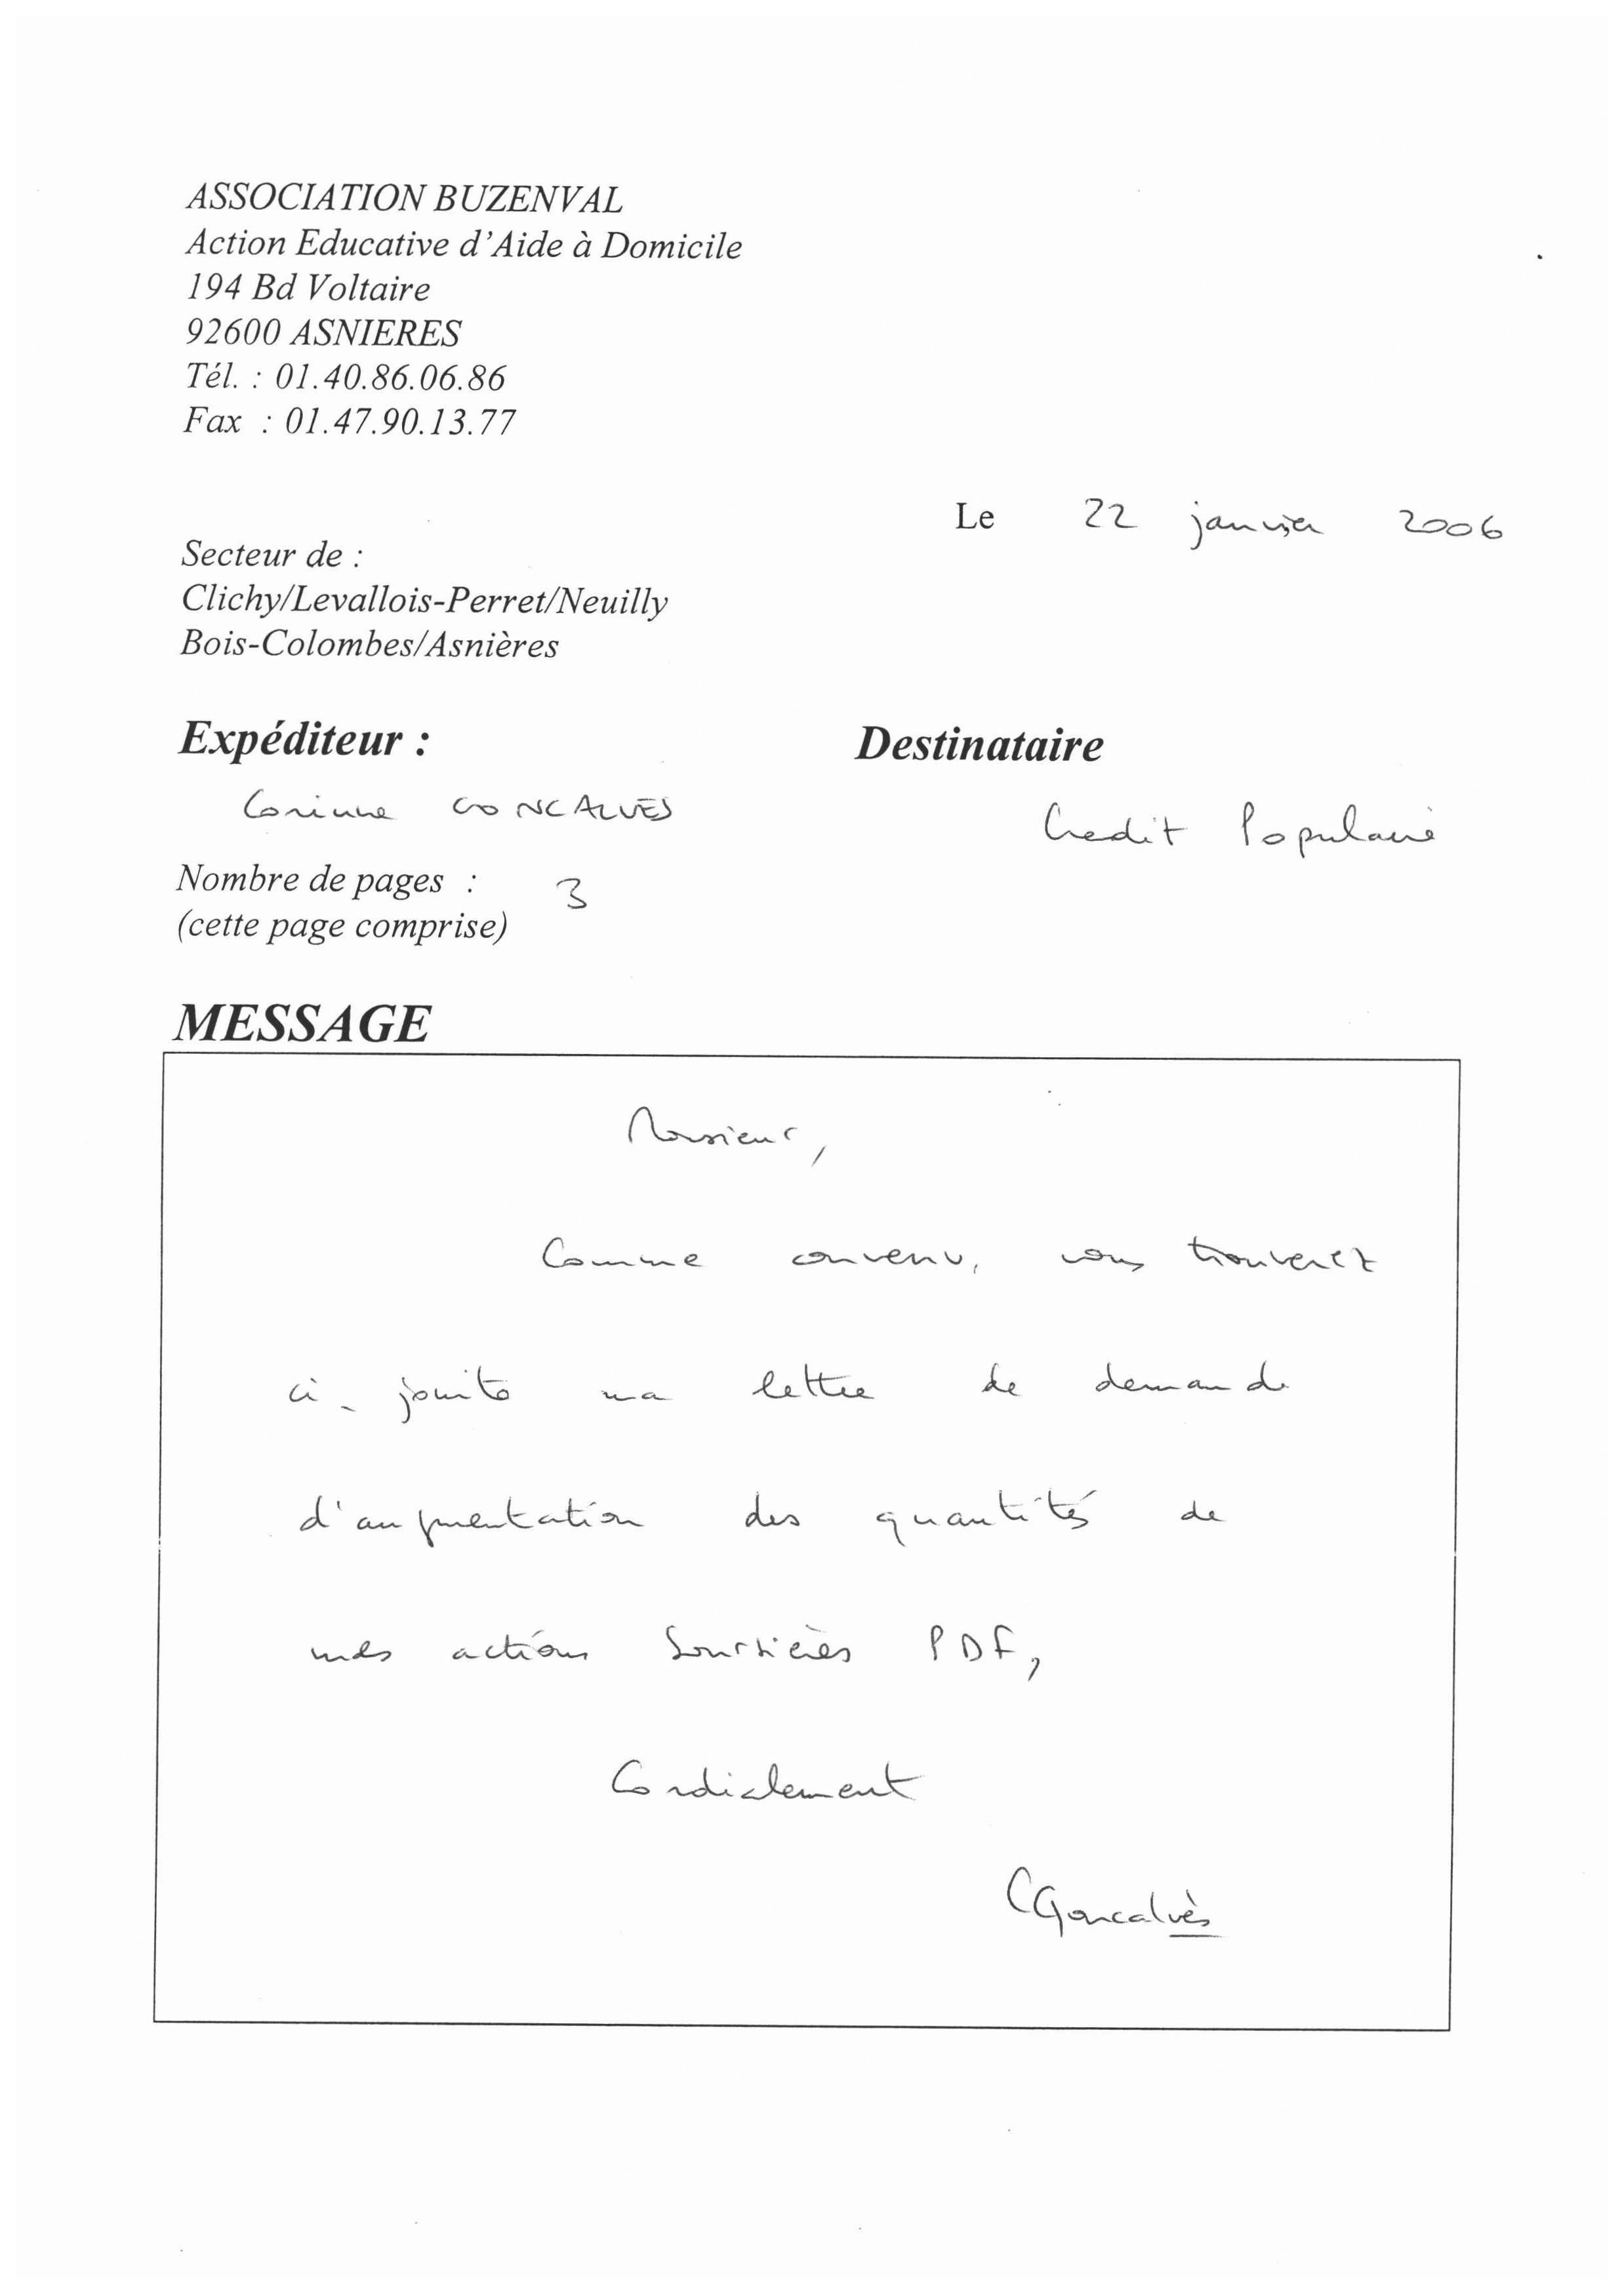 ASSOCIATION BUZENVAL
Action Educative d'Aide à Domicile
194 Bd Voltaire
92600 ASNIERES
Tél. : 01.40.86.06.86
Fax : 01.47.90.13.77
Le 22 janvier 2006
Secteur de :
Clichy/Levallois-Perret/Neuilly
Bois-Colombes/Asnières
Expéditeur :
Corinne GONCALVES
Destinataire
Credit Populaire
Nombre de pages : 3
(cette page comprise)
MESSAGE
Monsieur,
Comme convenu, vous trouverez
ci-jointe ma lettre de demande
d'augmentation des quantités de
mes actions boursières PDF,
Cordialement
CGoncalvès